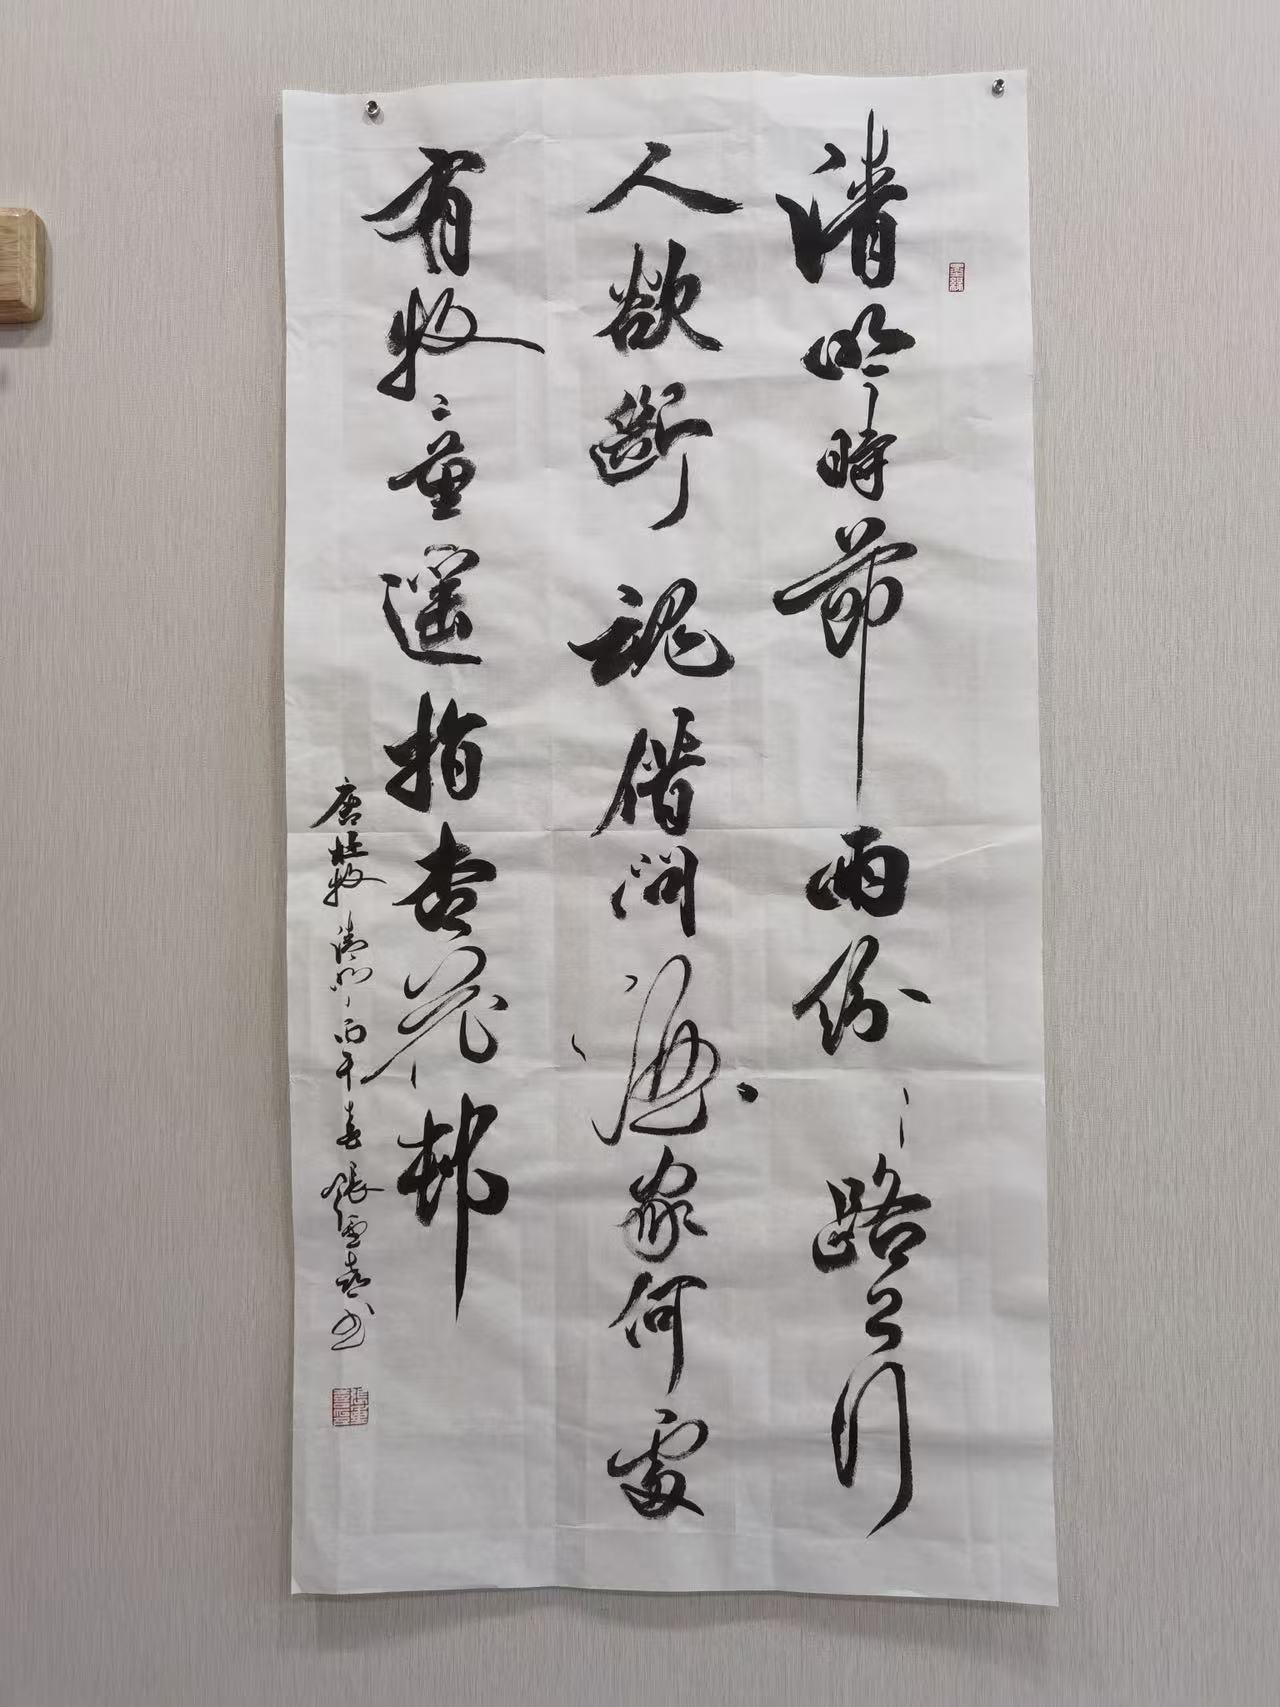 清明時節雨紛〻路上行
人欲斷魂借問酒家何處
有牧童遥指杏花邨
唐杜牧清明丙午春張雲喜书